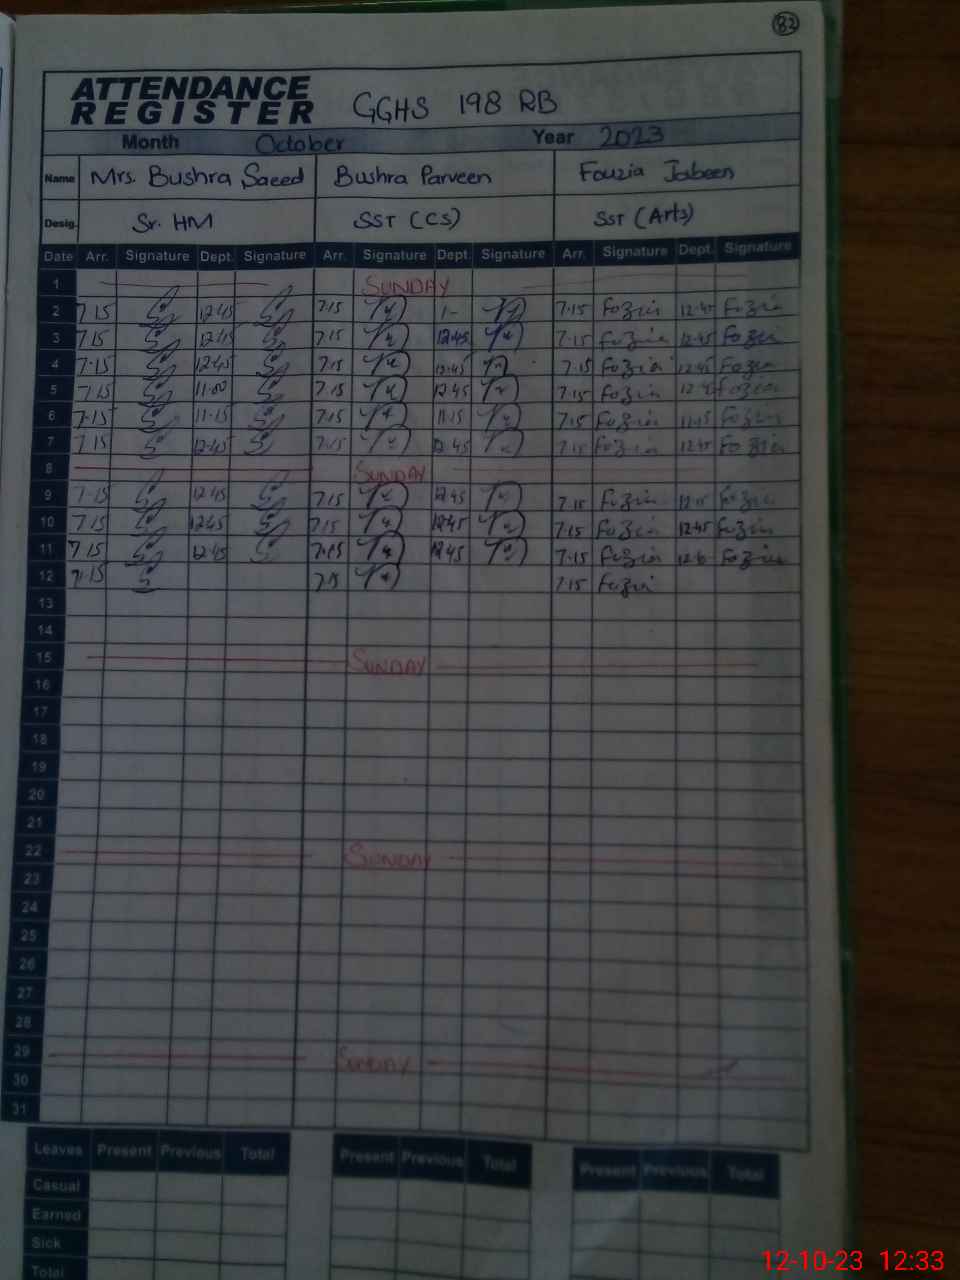 82
ATTENDANCE
REGISTER GGHS 198 RB
Month October Year 2023
Name Mrs. Bushra Saeed Bushra Parveen Fouzia Jabeen
Desig. Sr. HM SST (CS) SST (Arts)
Date Arr. Signature Dept. Signature Arr. Signature Dept. Signature Arr. Signature Dept. Signature
1 SUNDAY
2 7.15 12.45 7.15 1- 7.15 Fozia 12.45 Fozia
3 7.15 12.45 7.15 12.45 7.15 Fozia 12.45 Fozia
4 7.15 12.45 7.15 12.45 7.15 Fozia 12.45 Fozia
5 7.15 11.00 7.15 12.45 7.15 Fozia Fozia
6 7.15 11.15 7.15 11.15 7.15 Fozia 11.15 Fozia
7 7.15 12.45 7.15 12.45 7.15 Fozia 12.45 Fozia
8 SUNDAY
9 7.15 12.45 7.15 12.45 7.15 Fozia Fozia
10 7.15 12.45 7.15 12.45 7.15 Fozia 12.45 Fozia
11 7.15 12.45 7.15 12.45 7.15 Fozia Fozia
12 7.15 7.15 7.15 Fozia
13
14
15 SUNDAY
16
17
18
19
20
21
22 SUNDAY
23
24
25
26
27
28
29 SUNDAY
30
31
Leaves Present Previous Total Present Previous Total Present Previous Total
Casual
Earned
Sick
Total
12-10-23 12:33